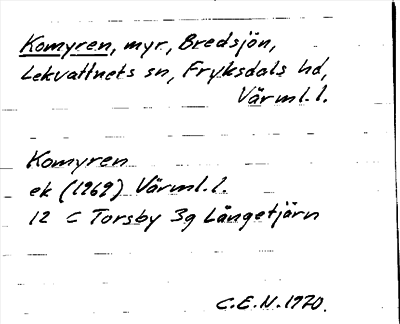 Komyren, myr, Bredsjön,
Lekvattnets sn, Fryksdals hd,
Värml. l.
Komyren
ek (1969) Värml. l.
12 C Torsby 3g Långetjärn
C.E.N. 1970.